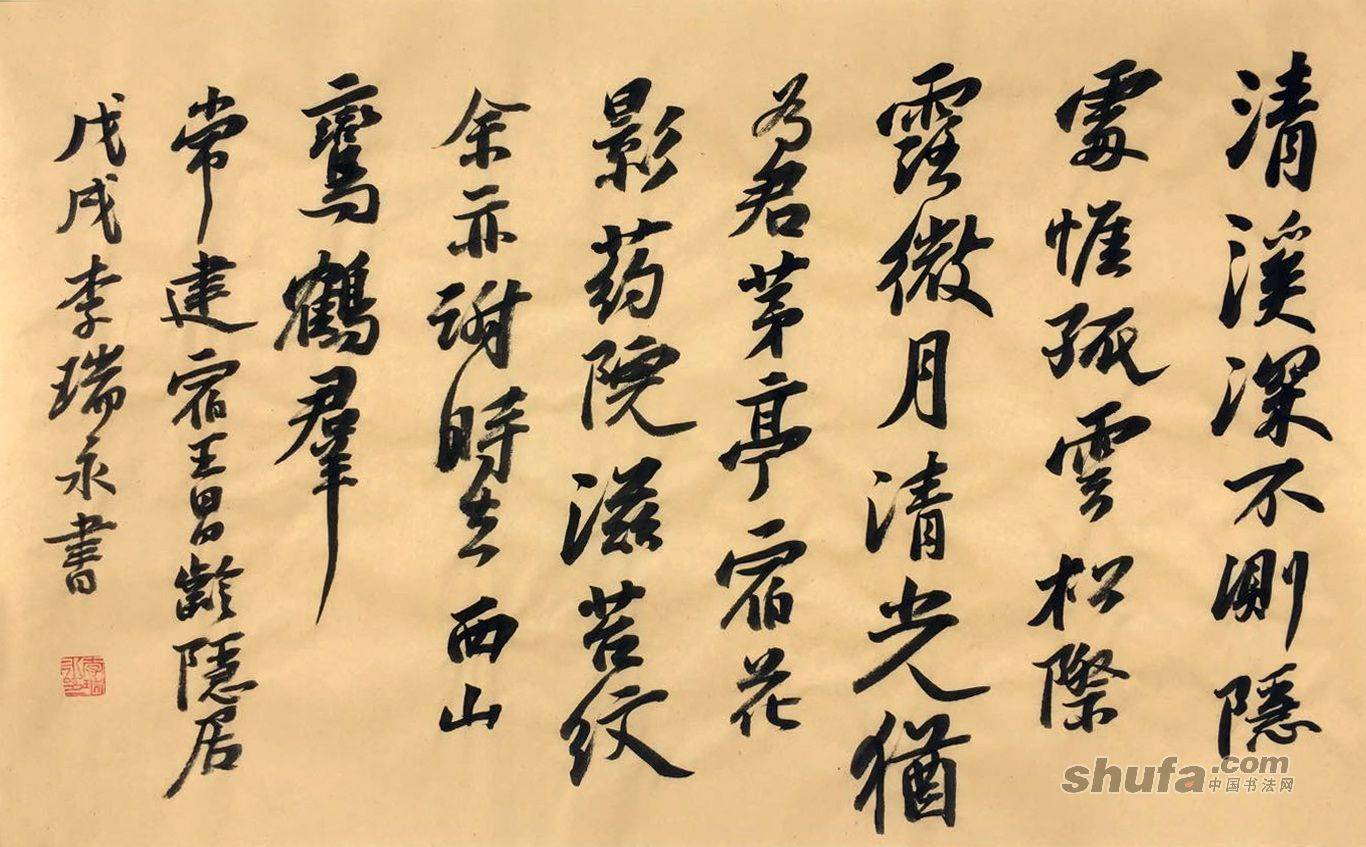 清溪深不测隱
處惟孤雲松際
露微月清光猶
为君茅亭宿花
影药院滋苔纹
余亦谢時去西山
鸾鶴羣
常建宿王昌龄隱居
戊戌李瑞永書
李瑞永印
shufa.com
中国书法网